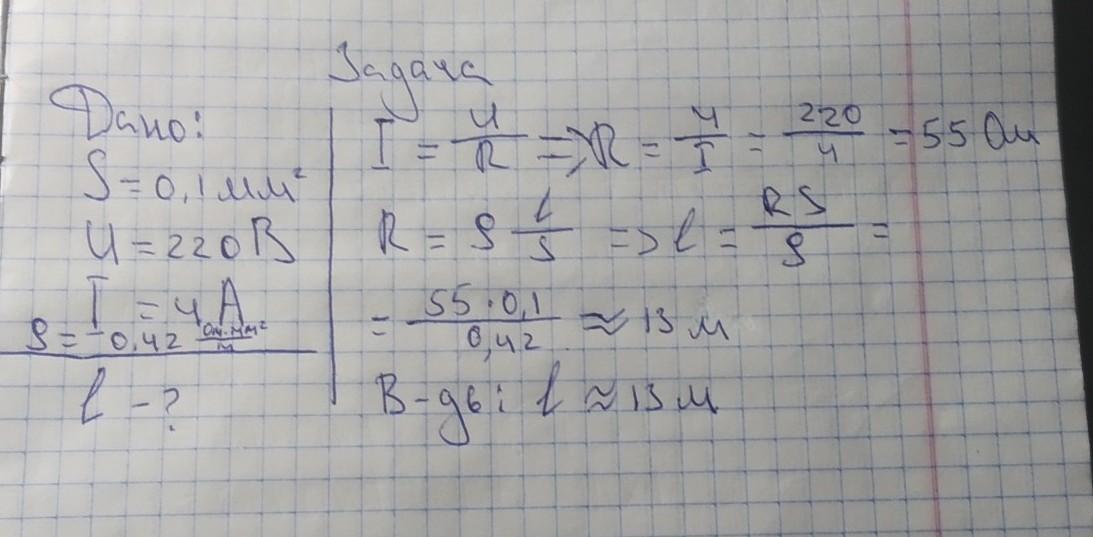 Задача
Дано:
S = 0,1 мм²
U = 220 В
I = 4 А
ρ = 0,42 Ом·мм²/м
l - ?
I = U/R => R = U/I = 220/4 = 55 Ом
R = ρ l/S => l = RS/ρ =
= 55·0,1/0,42 ≈ 13 м
В-дь: l ≈ 13 м